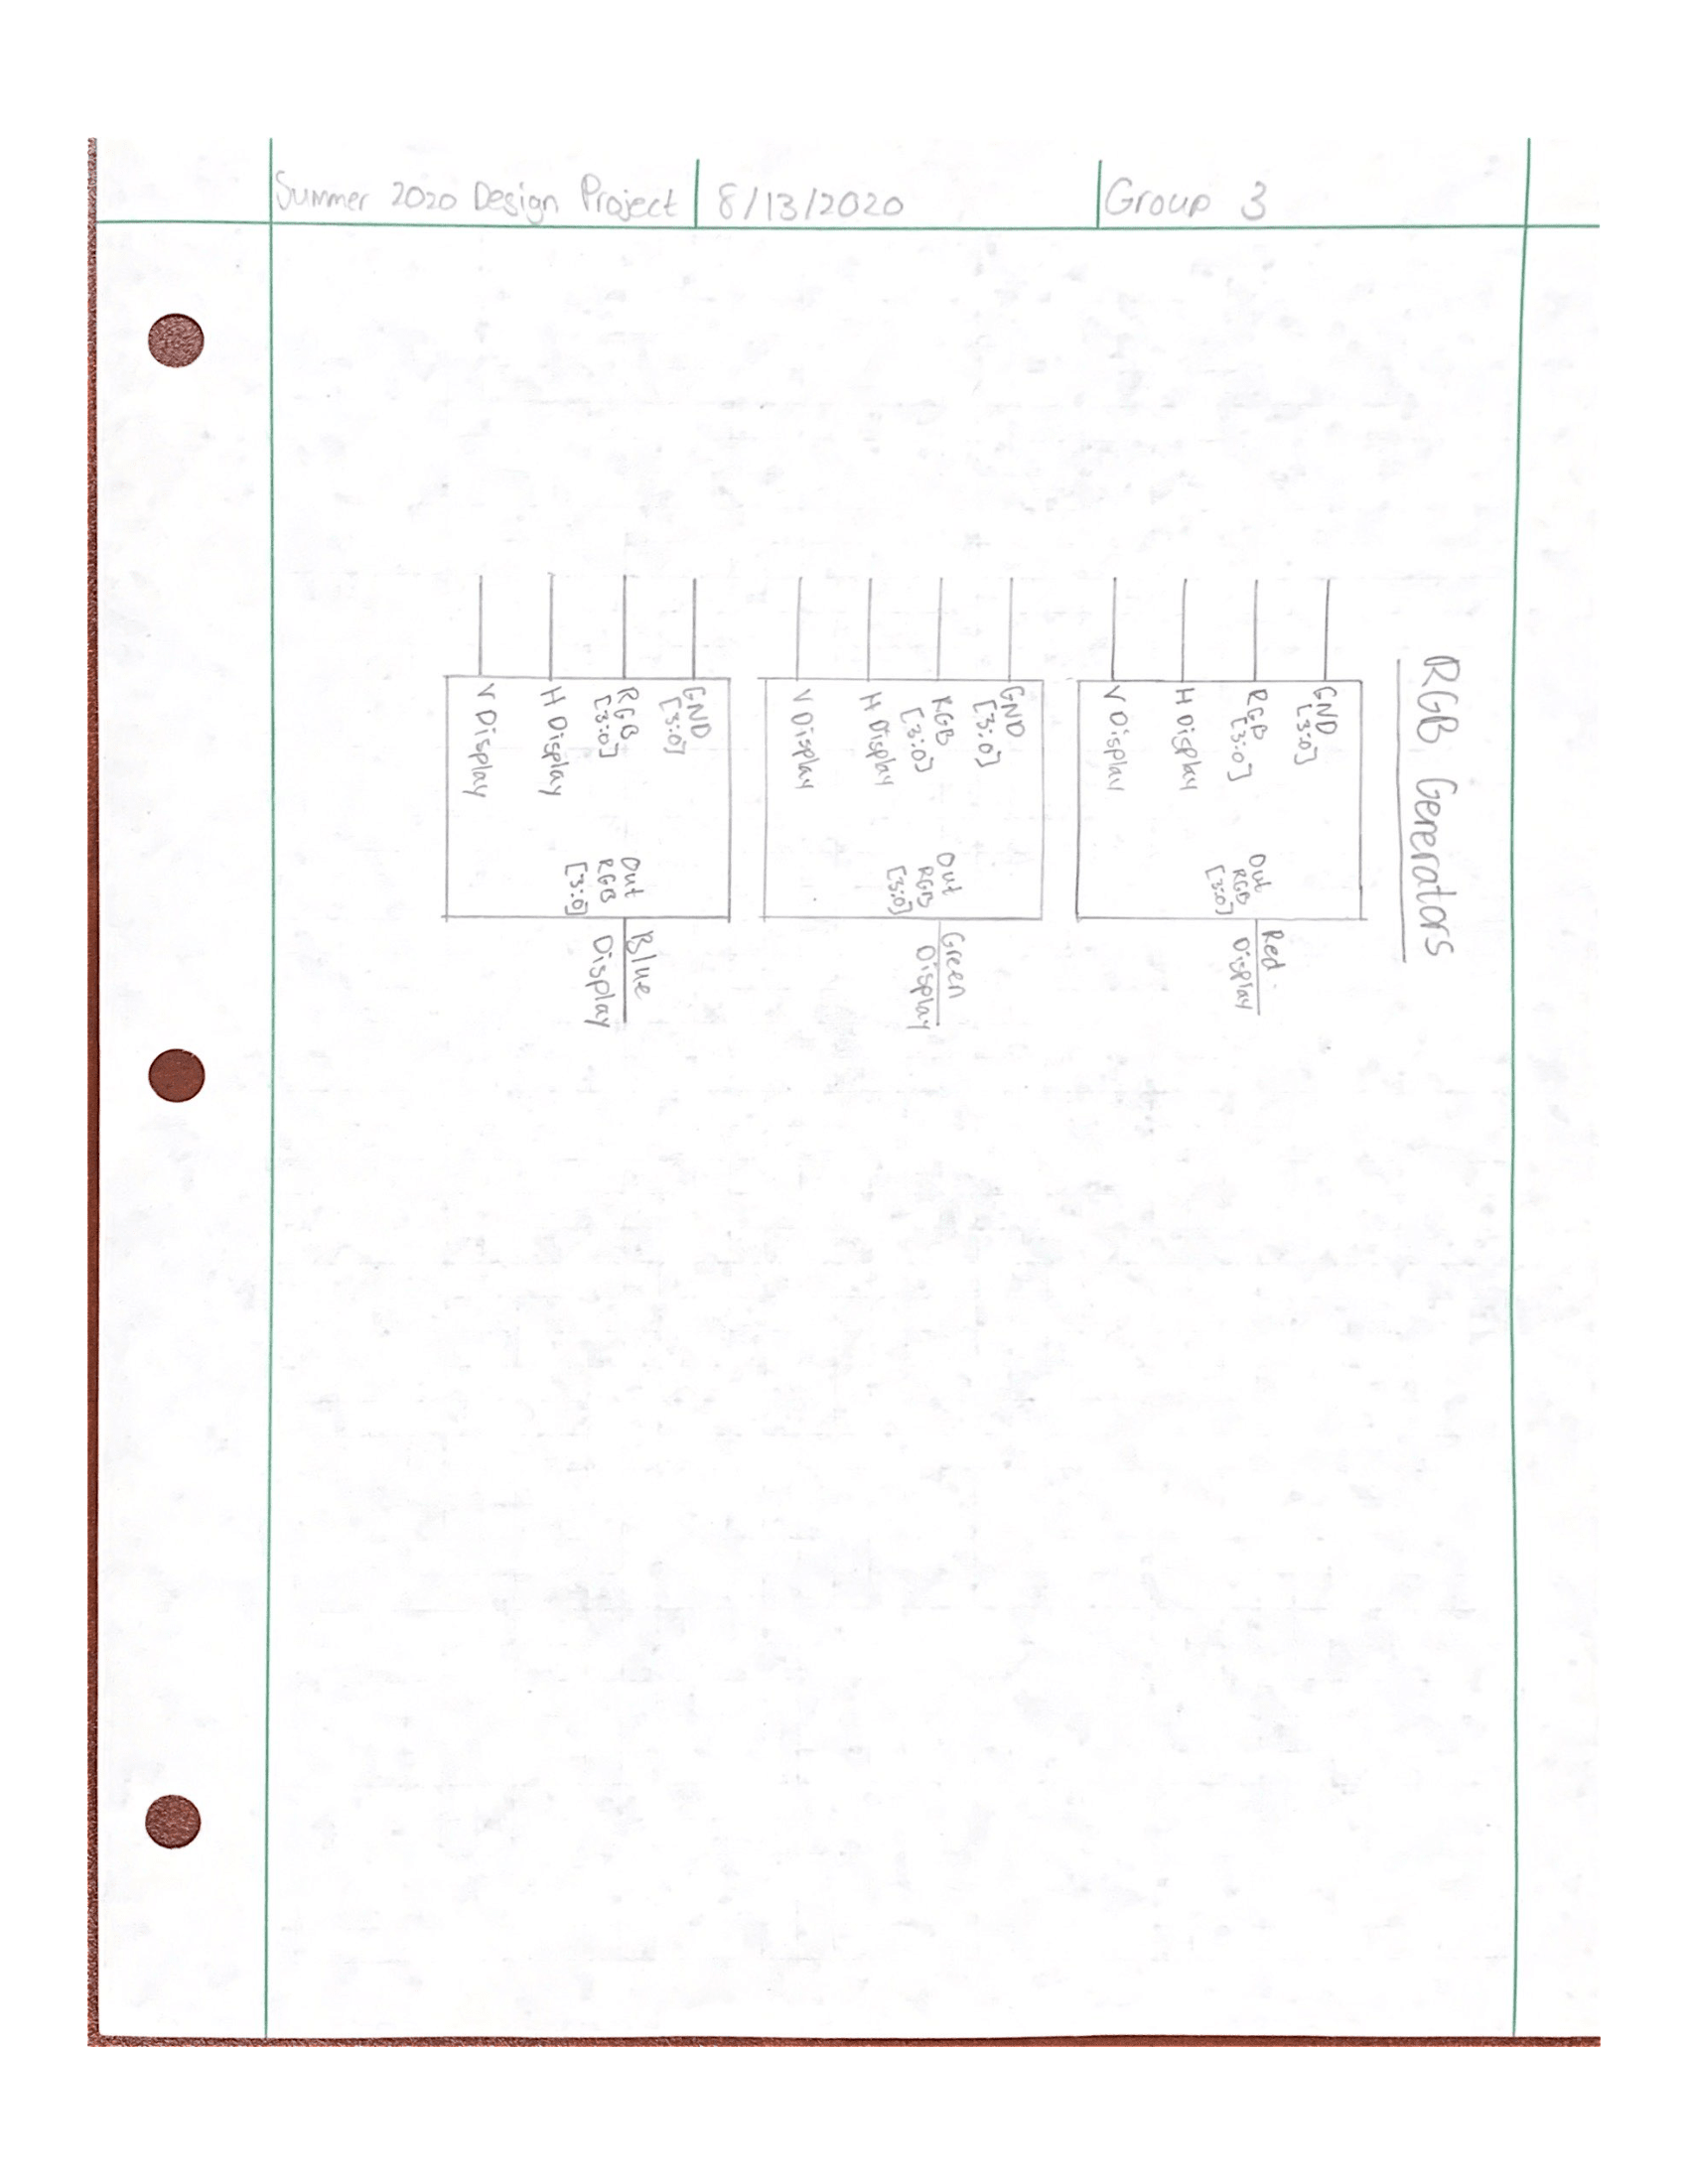 Summer 2020 Design Project
8/13/2020
Group 3
RGB Generators
GND
[3:0]
RGB
[3:0]
H Display
V Display
Out
RGB
[3:0]
Red
Display
GND
[3:0]
RGB
[3:0]
H Display
V Display
Out
RGB
[3:0]
Green
Display
GND
[3:0]
RGB
[3:0]
H Display
V Display
Out
RGB
[3:0]
Blue
Display